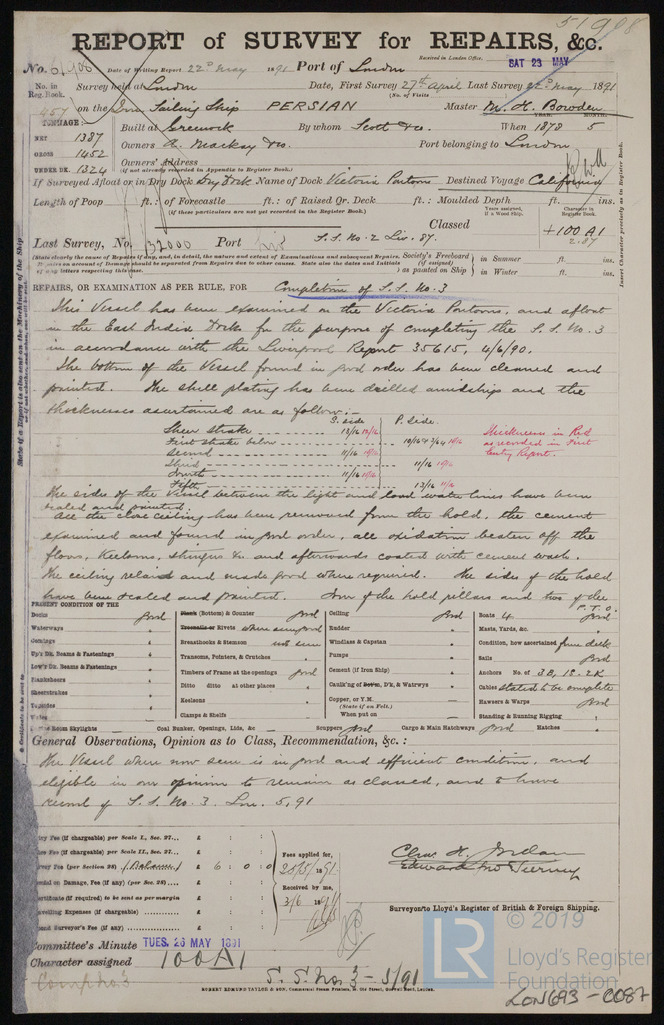 51908
REPORT of SURVEY for REPAIRS, &c.
Received in London Office. SAT 23 MAY
No. Date of Writing Report 22nd May 1891 Port of London
No. in Reg. Book. Survey held at London Date, First Survey 27th April Last Survey 22nd May 1891
(No. of Visits )
457 on the Iron Sailing Ship PERSIAN Master M. H. Bowden
TONNAGE: Built at Greenock By whom Scott & Co. When 1878 5
YEAR. MONTH.
NET 1387 Owners A. Mackay & Co. Port belonging to London
GROSS 1452 Owners' Address
UNDER DK. 1324 (if not already recorded in Appendix to Register Book.)
If Surveyed Afloat or in Dry Dock Dry Dock Name of Dock Victoria Pontoons Destined Voyage California
Length of Poop ft. : of Forecastle ft. : of Raised Qr. Deck ft. : Moulded Depth ft. ins.
(if these particulars are not yet recorded in the Register Book.)
Years assigned, if a Wood Ship. Character in Register Book.
Classed +100 A1
2.87
Last Survey, No. 32000 Port Liv S.S. No. 2 Liv. 87.
(State clearly the cause of Repairs if any, and, in detail, the nature and extent of Examinations and subsequent Repairs. Society's Freeboard in Summer ft. ins.
Repairs on account of Damage should be separated from Repairs due to other causes. State also the dates and Initials of any letters respecting this case. (if assigned) as painted on Ship in Winter ft. ins.
Insert Character precisely as in Register Book.
State if a Report is also sent on the Machinery of the Ship
REPAIRS, OR EXAMINATION AS PER RULE, FOR Completion of S.S. No. 3
This Vessel has been examined on the Victoria Pontoons, and afloat
in the East India Dock for the purpose of completing the S.S. No. 3
in accordance with the Liverpool Report 35615, 4/6/90.
The bottom of the Vessel found in good order has been cleaned and
painted. The shell plating has been drilled amidships and the
thicknesses ascertained are as follow:-
S. side P. Side.
Sheer strake 13/16 12/16
First strake below 10/16 & 3/64 10/16
Second 11/16 10/16
Third 11/16 10/16
Fourth 11/16 10/16
Fifth 13/16 11/16
Thicknesses in Red as recorded in First Entry Report.
The sides of the Vessel between the light and load water lines have been
scaled and painted.
All the close ceiling has been removed from the hold, the cement
examined and found in good order, all oxidation beaten off the
floors, keelsons, stringers &c and afterwards coated with cement wash.
The ceiling relaid and made good where required. The sides of the hold
have been scaled and painted. Some of the hold pillars and two of the
P.T.O.
PRESENT CONDITION OF THE
Decks good
Waterways "
Comings "
Up'r Dk. Beams & Fastenings "
Low'r Dk. Beams & Fastenings "
Planksheers "
Sheerstrakes "
Topsides "
Wales "
Engine Room Skylights
(Bottom) & Counter good
Treenails or Rivets where seen good
Breasthooks & Stemson not seen
Transoms, Pointers, & Crutches
Timbers of Frame at the openings good
Ditto ditto at other places "
Keelsons "
Clamps & Shelfs
Coal Bunker, Openings, Lids, &c
Ceiling good
Rudder "
Windlass & Capstan "
Pumps "
Cement (if Iron Ship) "
Caulk'ng of Bottom, D'k, & Watrwys "
Copper, or Y.M.
(State if on Felt.)
When put on
Scuppers good Cargo & Main Hatchways good Hatches "
Boats 4 good
Masts, Yards, &c. "
Condition, how ascertained from deck
Sails good
Anchors No. of 3B, 1S. 2K
Cables stated to be complete
Hawsers & Warps good
Standing & Running Rigging "
General Observations, Opinion as to Class, Recommendation, &c. :
The Vessel where now seen is in good and efficient condition, and
eligible in our opinion to remain as classed, and to have
record of S.S. No. 3. Lon. 5,91
Entry Fee (if chargeable) per Scale I., Sec. 27... £ : :
Fee (if chargeable) per Scale II., Sec. 27... £ : :
Survey Fee (per Section 28) (Balance) £ 6 : 0 : 0
Special or Damage, Fee (if any) (per Sec. 28) £ : :
Certificate (if required) to be sent as per margin £ : :
Travelling Expenses (if chargeable) £ : :
Second Surveyor's Fee (if any) £ : :
Fees applied for, 28/5/1891.
Received by me, 3/6 1891
Chas. H. Jordan
Edward Jno Tierney
Surveyor to Lloyd's Register of British & Foreign Shipping.
Committee's Minute TUES. 26 MAY 1891
Character assigned 100A1
S.S. No. 3 - 5/91
ROBERT EDMUND TAYLOR & SON, Commercial Steam Printers, 19, Old Street, Goswell Road, London.
© 2019
LR
Lloyd's Register
Foundation
LON693-0087